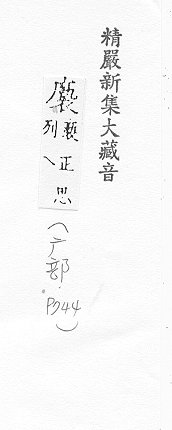 精嚴新集大藏音
褻正思
列乀
(广部.P344)